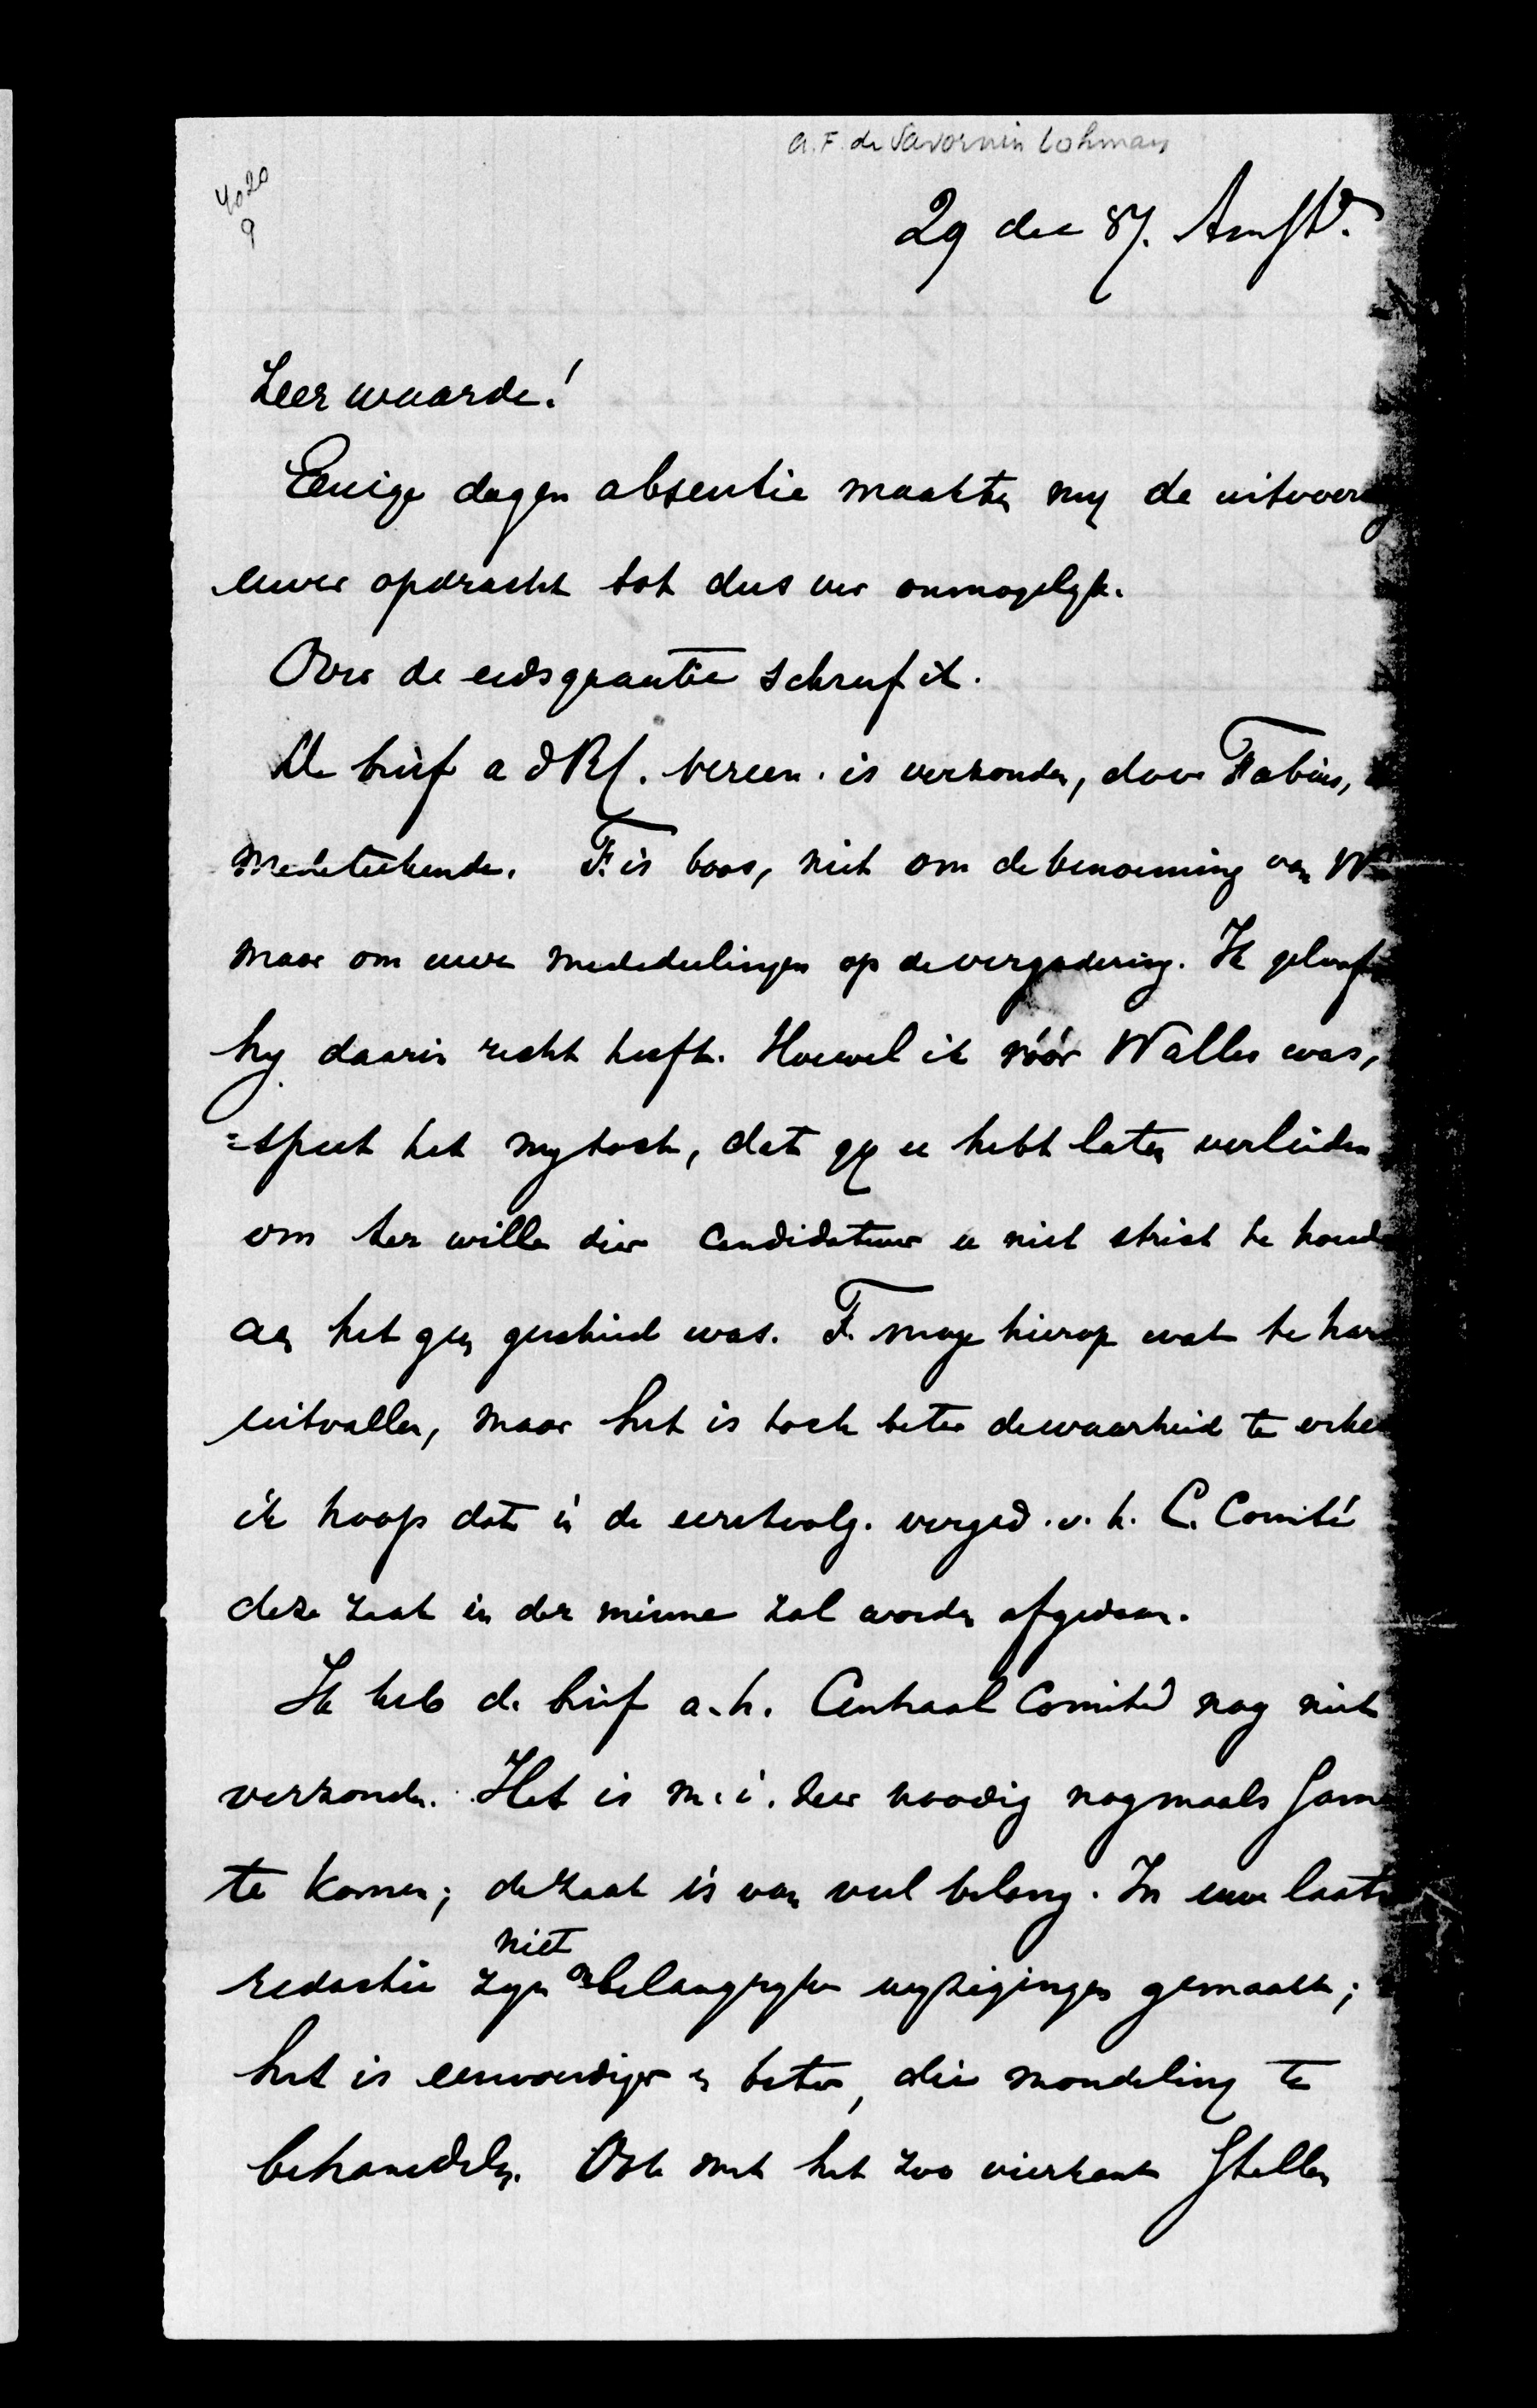 A.F. de Savornin Lohman
4020
9
29 dec 87. Amst.
Zeer waarde!
Eenige dagen absentie maakten my de uitvoering
uwer opdracht tot dus ver onmogelyk.
Over de eedsquaestie schreef ik.
De brief a d Rl. vereen. is verzonden, door Fabius,
medeteekende. F. is boos, niet om de benoeming van W
maar om uwe mededeelingen op de vergadering. Ik geloof
hy daarin recht heeft. Hoewel ik vóór Waller was,
=speet het my toch, dat gy u hebt laten verleiden
om ter wille dier candidatuur u niet strict te houde
aan het geen geschied was. F. moge hierop wat te hard
uitvallen, maar het is toch beter de waarheid te erken
ik hoop dat in de eerstvolg. vergad. v. h. C. Comité
deze zaak in der minne zal worden afgedaan.
Ik heb de brief a. h. Centraal Comité nog niet
verzonden. Het is m.i. zeer noodig nogmaals same
te komen; de zaak is van veel belang. In uwe laatste
niet
redactie zyn onbelangryke wyzigingen gemaakt;
het is eenvoudiger en beter, die mondeling te
behandelen. Ook met het zoo vierkant stellen